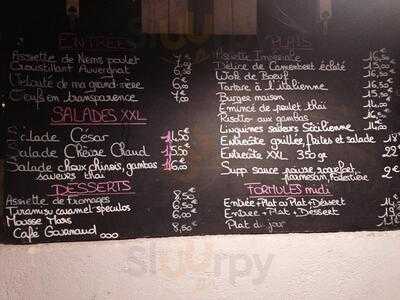 ENTREES
Assiette de Nems poulet 7,50€
Croustillant Auvergnat
Velouté de ma grand-mère 6,00€
Oeufs en transparence 7,00€
SALADES XXL
Salade César 14,50€
Salade Chèvre Chaud
Salade choux chinois, gambas
saveurs thaï
DESSERTS
Assiette de fromages 8,50€
Tiramisu caramel-spéculos
Mousse Mars 6,00€
Café Gourmand ... 8,50€
PLATS
Assiette Impériale
Délice de Camembert éclaté
Wok de Boeuf
Tartare à l'italienne
Burger maison
Emincé de poulet thaï
Risotto aux gambas
Linguines saveurs Sicilienne
Entrecôte grillée, frites et salade
Entrecôte XXL 350gr
Supp sauce poivre, roquefort, 2€
parmesan, forestière
FORMULES midi
Entrée+Plat ou Plat+Dessert
Entrée+Plat+Dessert
Plat du jour
Sluurpy